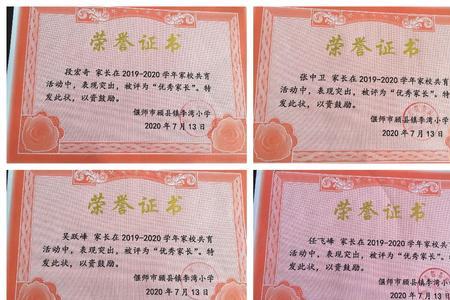 荣誉证书
段宏奇 家长在2019-2020学年家校共育
活动中，表现突出，被评为“优秀家长”。特
发此状，以资鼓励。
偃师市顾县镇李湾小学
2020年7月13日
荣誉证书
张中卫 家长在2019-2020学年家校共育
活动中，表现突出，被评为“优秀家长”。特
发此状，以资鼓励。
偃师市顾县镇李湾小学
2020年7月13日
荣誉证书
吴跃峰 家长在2019-2020学年家校共育
活动中，表现突出，被评为“优秀家长”。特
发此状，以资鼓励。
偃师市顾县镇李湾小学
2020年7月13日
荣誉证书
任飞峰 家长在2019-2020学年家校共
活动中，表现突出，被评为“优秀家长”。
发此状，以资鼓励。
偃师市顾县镇李湾小学
2020年7月13日